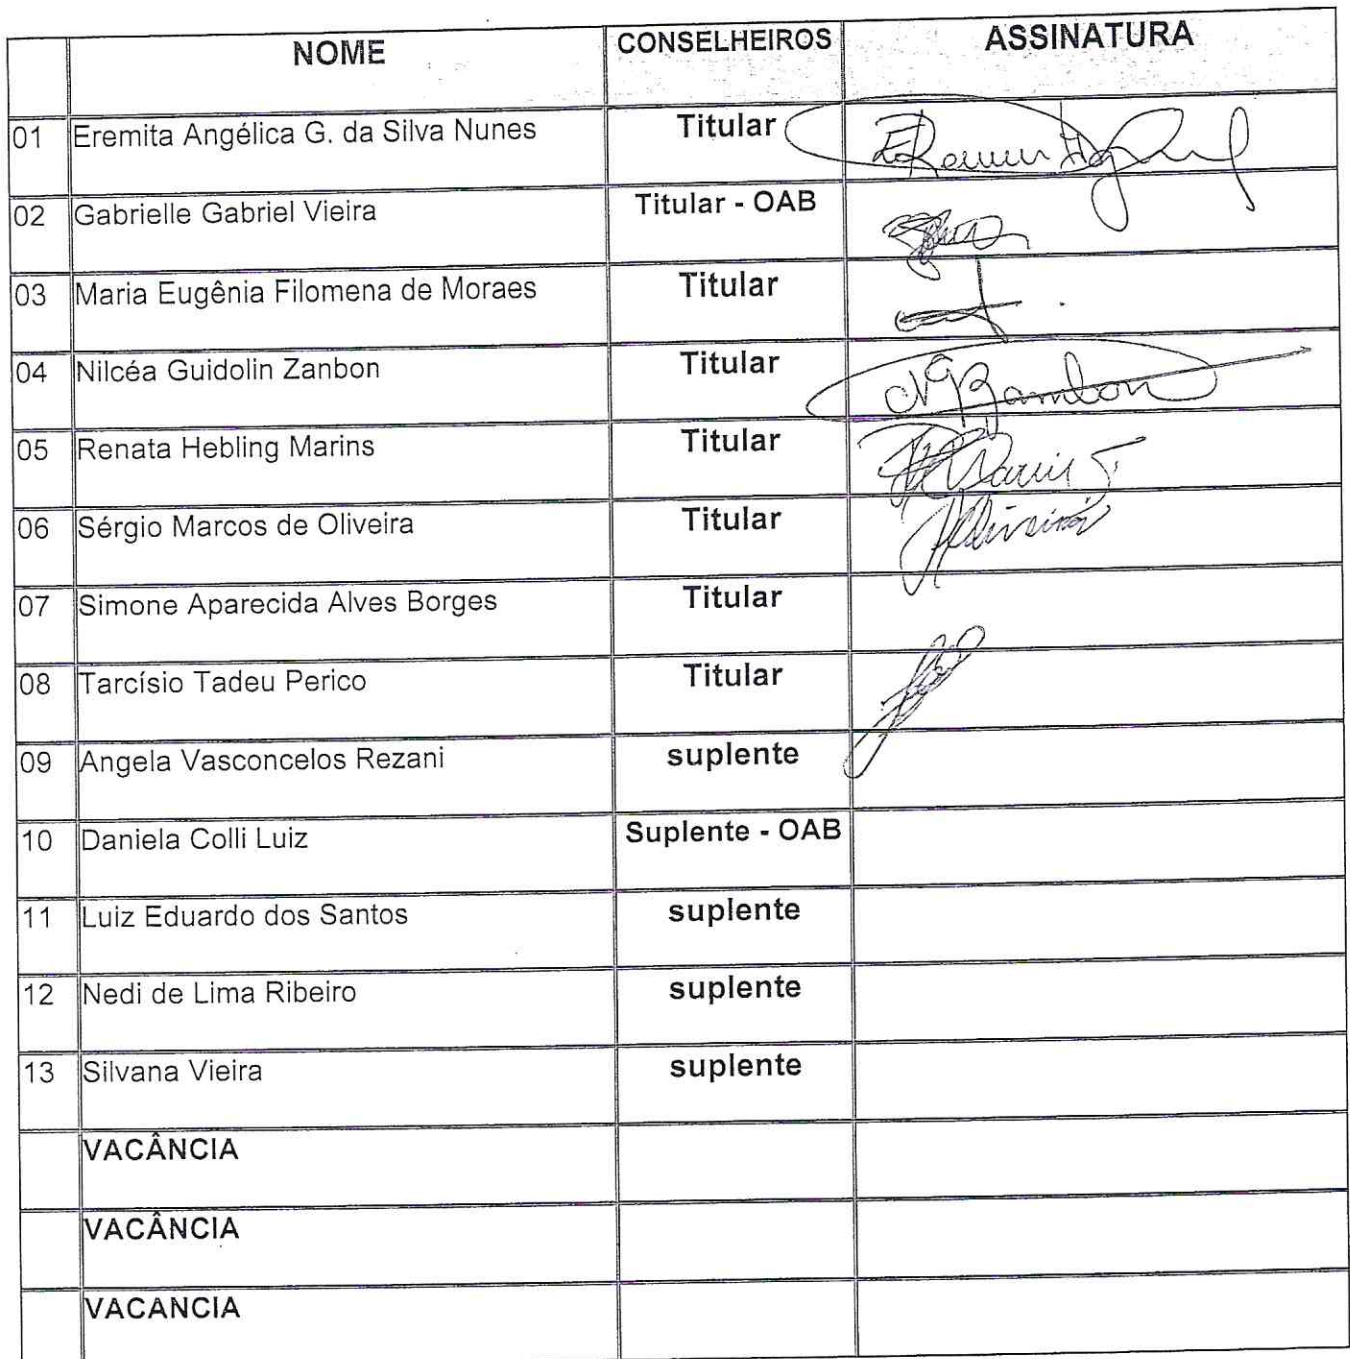 NOME CONSELHEIROS ASSINATURA
01 Eremita Angélica G. da Silva Nunes Titular
02 Gabrielle Gabriel Vieira Titular - OAB
03 Maria Eugênia Filomena de Moraes Titular
04 Nilcéa Guidolin Zanbon Titular NGZambon
05 Renata Hebling Marins Titular
06 Sérgio Marcos de Oliveira Titular
07 Simone Aparecida Alves Borges Titular
08 Tarcísio Tadeu Perico Titular
09 Angela Vasconcelos Rezani suplente
10 Daniela Colli Luiz Suplente - OAB
11 Luiz Eduardo dos Santos suplente
12 Nedi de Lima Ribeiro suplente
13 Silvana Vieira suplente
VACÂNCIA
VACÂNCIA
VACANCIA